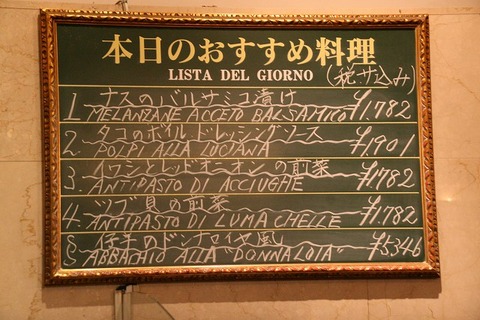 本日のおすすめ料理
LISTA DEL GIORNO (税サ込み)
1. ナスのバルサミコ漬け
MELANZANE ACCETO BALSAMICO ¥1.782
2. タコのボイルドレッシングソース
POLPI ALLA LUCIANA ¥1901
3. イワシとレッドオニオンの前菜
ANTIPASTO DI ACCIUGHE ¥1.782
4. ツブ貝の前菜
ANTIPASTO DI LUMACHELLE ¥1.782
5. 仔羊のドンナロイヤ風
ABBACHIO ALLA "DONNALOIA" ¥5346